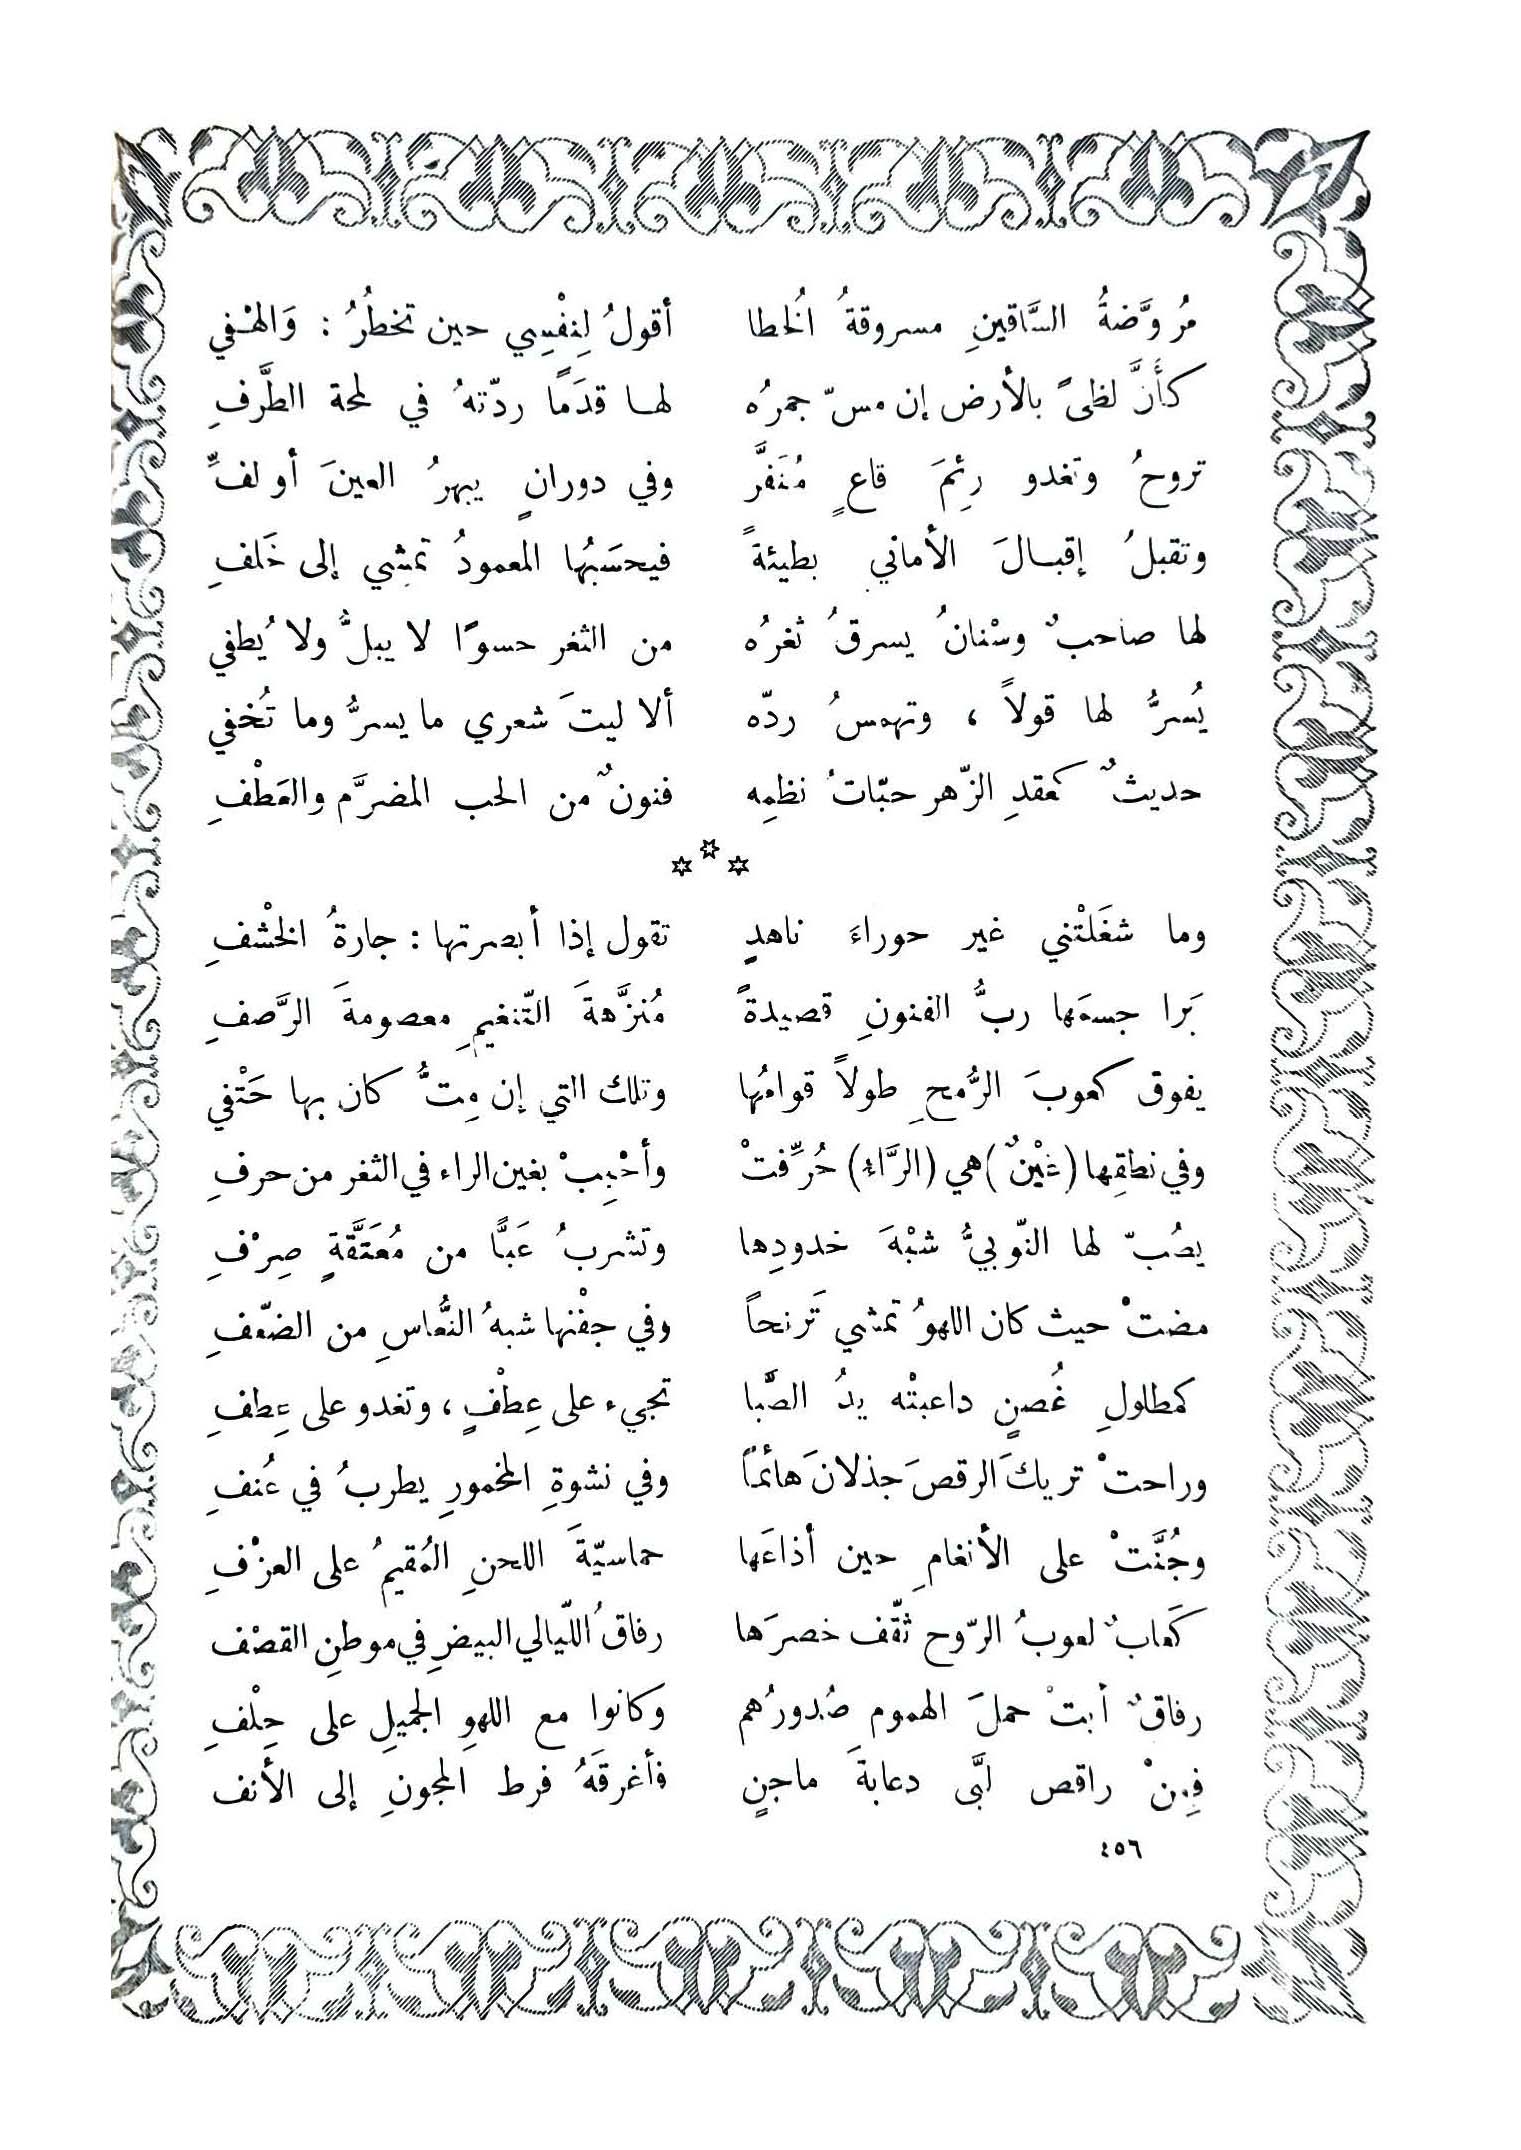 مُروَّضةُ السَّاقينِ مسروقةُ الخُطا    أقولُ لِنفْسِي حين تخطُرُ : وَالهْفي
كأَنَّ لظىً بالأرض إن مسّ جمرُه    لها قدَمًا ردّتهُ في لمحة الطَّرفِ
تروحُ وتغدو رِئمَ قاعٍ مُنَفَّرٍ    وفي دورانٍ يبهرُ العينَ أو لفِّ
وتقبلُ إقبالَ الأماني بطيئةً    فيحسَبُها المعمودُ تمشِي إلى خَلفِ
لها صاحبٌ وسْنانُ يسرقُ ثغرُه    من الثغر حسوًا لا يبلُّ ولا يُطفي
يُسرُّ لها قولاً ، وتهمسُ ردّه    ألا ليتَ شعري ما يسرُّ وما تُخفي
حديثٌ كعقدِ الزّهر حبّاتُ نظمِه    فنونٌ من الحب المضرَّم والعَطْفِ
***
وما شغَلتْني غير حوراءَ ناهدٍ    تقول إذا أبصرتها : جارةُ الخشْفِ
بَرا جسمَها ربُّ الفنونِ قصيدةً    مُنزَّهةَ التّنغيمِ معصومةَ الرَّصفِ
يفوق كعوبَ الرُّمحِ طولاً قوامُها    وتلك التي إن مِتُّ كان بها حَتْفي
وفي نطقِها (غيْنٌ) هي (الرَّاءُ) حُرِّفتْ    وأحْبِبْ بغين الراء في الثغر من حرفِ
يصُبّ لها النّوبيُّ شبْهَ خدودِها    وتشربُ عَبًّا من مُعَتَّقةٍ صِرْفِ
مضتْ حيث كان اللهوُ تمشي تَرنحاً    وفي جفْنها شبهُ النُّعاسِ من الضّعفِ
كمطلولِ غُصنٍ داعبتْه يدُ الصَّبا    تجيء على عِطْفٍ ، وتغدو على عِطفِ
وراحتْ تريكَ الرقصَ جذلانَ هائمًا    وفي نشوةِ المخمورِ يطربُ في عُنفِ
وجُنَّتْ على الأنغامِ حين أذاعَها    حماسيّةَ اللحنِ المُقيمُ على العزْفِ
كَعابٌ لعوبُ الرّوح ثقّف خصرَها    رفاقُ اللّيالي البيضِ في موطنِ القصْفِ
رفاقٌ أبتْ حملَ الهموم صُدورُهم    وكانوا مع اللهوِ الجميلِ على حِلْفِ
فمِنْ راقص لبَّى دعابةَ ماجنٍ    فأغرقَهُ فرط المجونِ إلى الأنف
٤٥٦